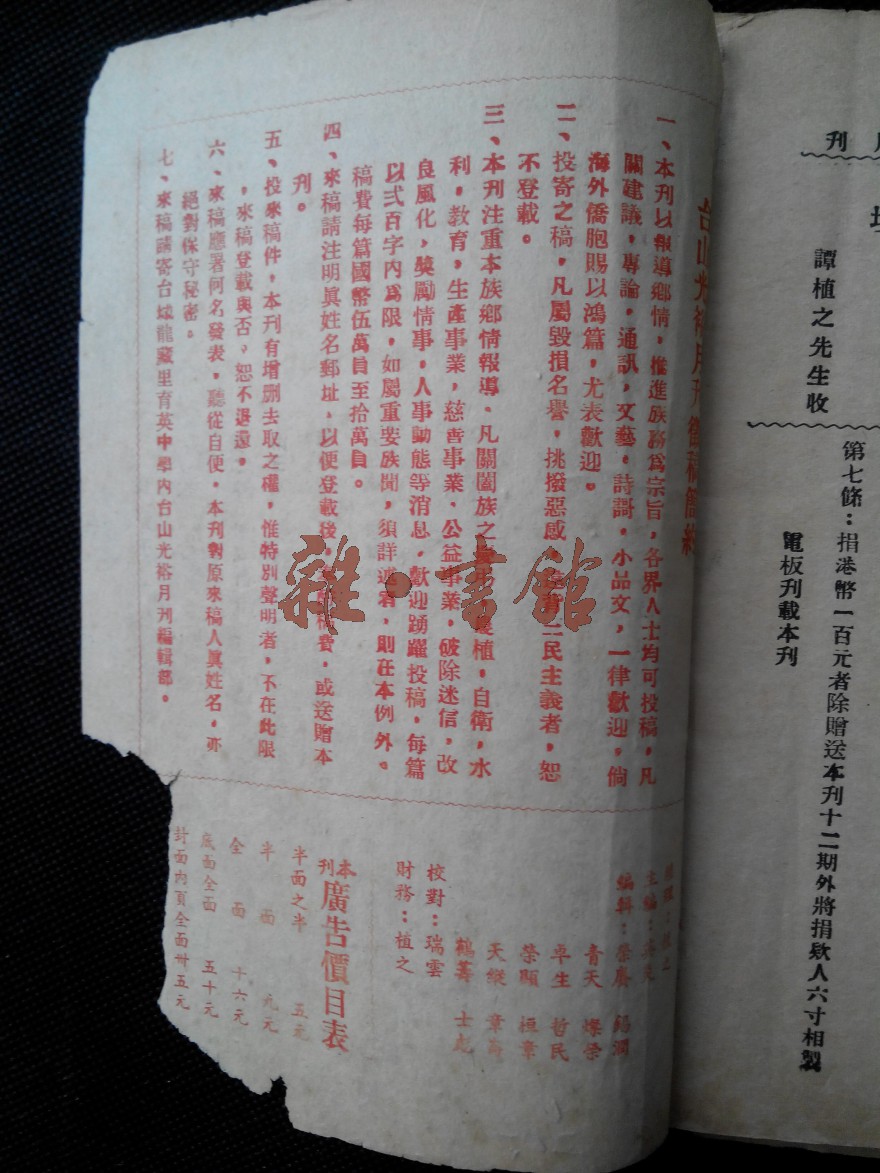 刊
譚植之先生收
第七條：捐港幣一百元者除贈送本刊十二期外將捐欵人六寸相製
電板刊載本刊
台山光裕月刊徵稿簡約
一、本刊以報導鄉情，推進族務爲宗旨，各界人士均可投稿，凡
關建議，專論，通訊，文藝，詩謌，小品文，一律歡迎，倘
海外僑胞賜以鴻篇，尤表歡迎。
二、投寄之稿，凡屬毀損名譽，挑撥惡感，三民主義者，恕
不登載。
三、本刊注重本族鄉情報導．凡關闔族之植，自衛，水
利，教育，生產事業，慈善事業．公益事業，破除迷信，改
良風化，獎勵情事，人事動態等消息．歡迎踴躍投稿，每篇
以弍百字內爲限，如屬重要族聞，須詳述者，則在本例外。
稿費每篇國幣伍萬員至拾萬員。
四、來稿請注明眞姓名郵址，以便登載後，費，或送贈本
刊。
五、投來稿件，本刊有增刪去取之權，惟特別聲明者，不在此限
，來稿登載與否，恕不退還。
六、來稿應署何名發表，聽從自便，本刊對原來稿人眞姓名，亦
絕對保守秘密。
七、來稿請寄台城龍藏里育英中學內台山光裕月刊編輯部。
雜·書館
編輯：榮 錫潤
青天 燦榮
卓生 哲民
榮顯 桓章
天縱 章
鶴壽 士彪
校對：瑞雲
財務：植之
本刊廣告價目表
半面之半 五元
半面 九元
全面 十六元
底面全面 五十元
封面內頁全面卅五元